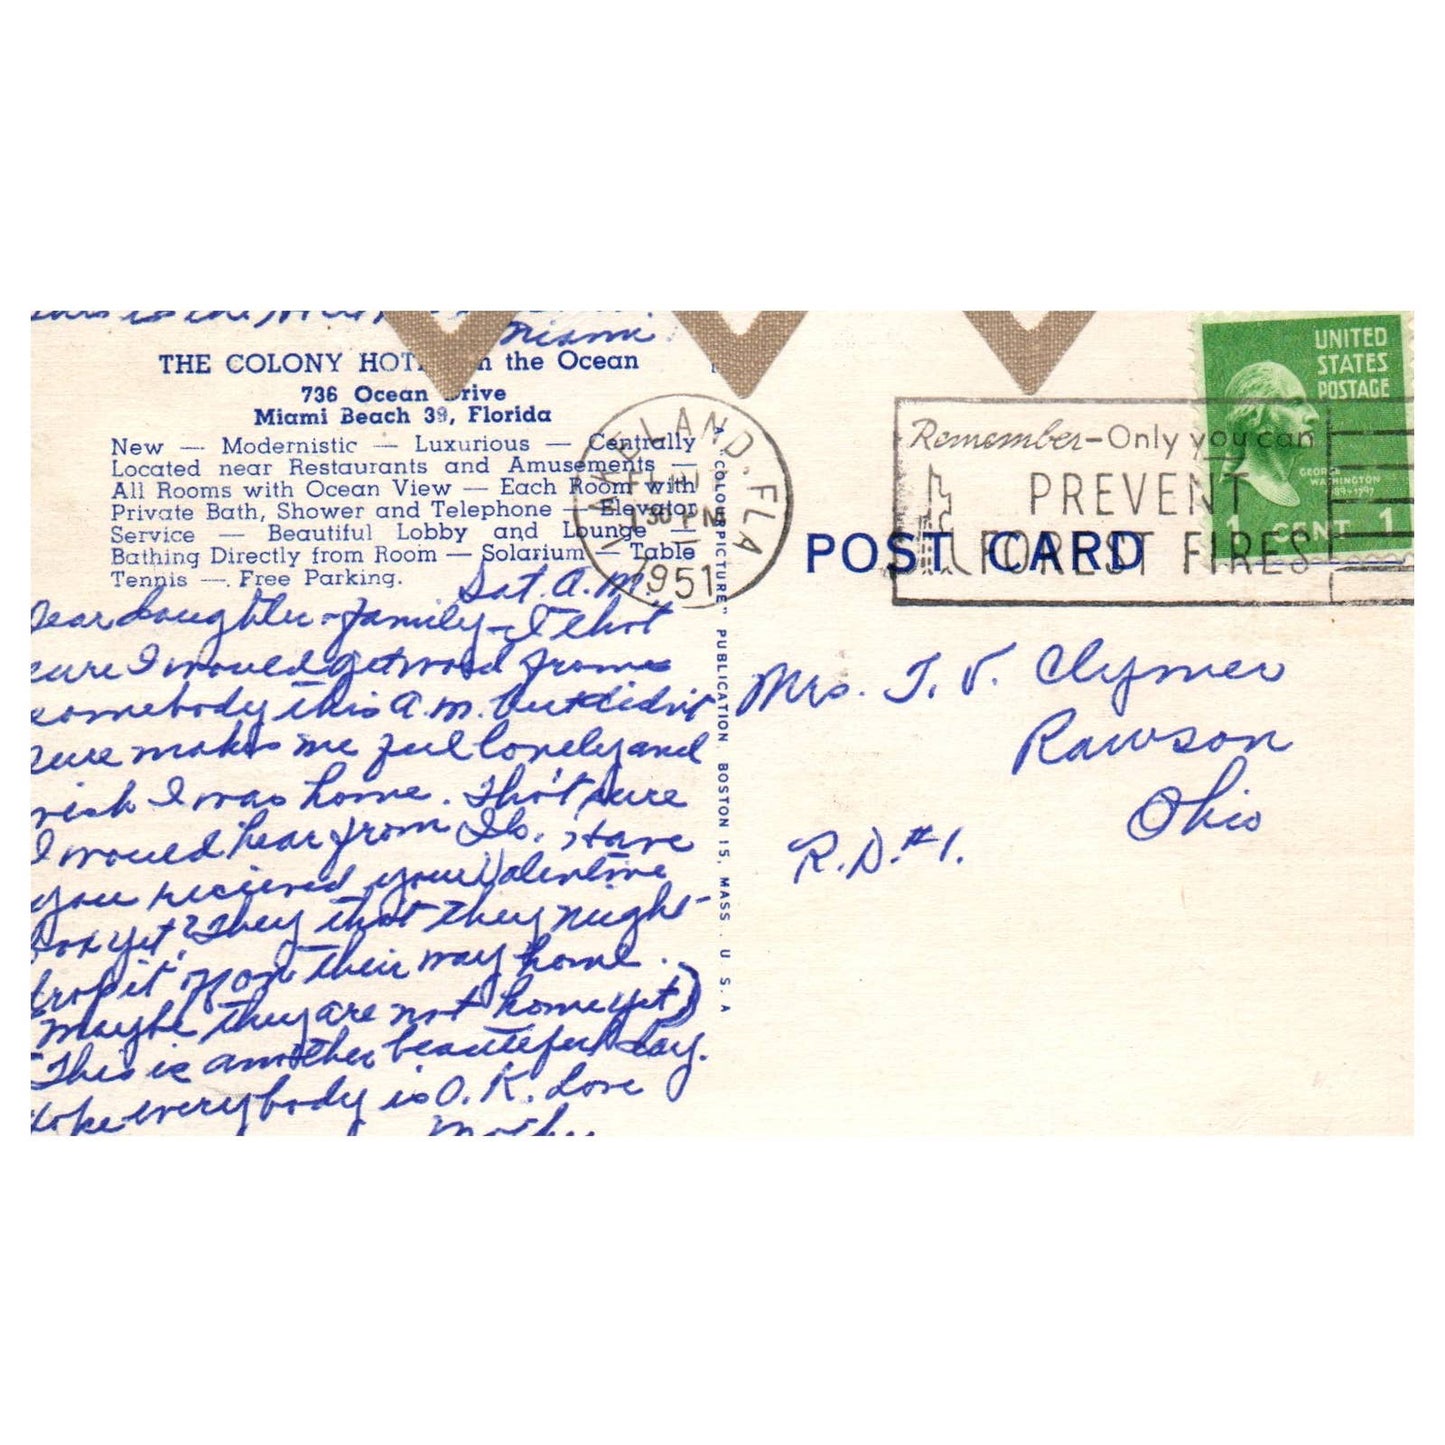 this is the
Miami.
THE COLONY HOT n the Ocean
736 Ocean rive
Miami Beach 39, Florida
New — Modernistic — Luxurious — Centrally
Located near Restaurants and Amusements —
All Rooms with Ocean View — Each Room with
Private Bath, Shower and Telephone — Elevator
Service — Beautiful Lobby and Lounge —
Bathing Directly from Room — Solarium — Table
Tennis — Free Parking.
Sat. A.M.
Dear Daughter & family - I thot
sure I would get word from
somebody this A.M. but didn't
sure makes me feel lonely and
wish I was home. Tho't sure
I would hear from Is. Have
you recieved your Valentine
box yet? They thot they might
drop it off on their way home.
(Maybe they are not home yet)
This is another beautiful day.
Hope everybody is O.K. Love
Mother
A "COLOURPICTURE" PUBLICATION, BOSTON 15, MASS., U. S. A
LAKELAND, FLA
FEB
30 PM
1951
Remember-Only you can
PREVENT
FOREST FIRES
UNITED
STATES
POSTAGE
GEORGE
WASHINGTON
1789-1797
1 CENT 1
POST CARD
Mrs. T. V. Clymer
Rawson
Ohio
R.D.#1.